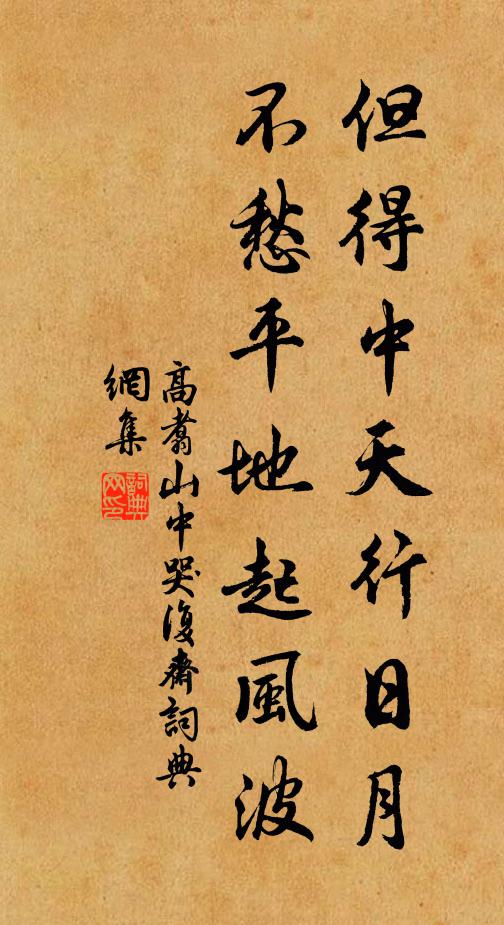 但得中天行日月
不愁平地起風波
高翥山中哭復齋詞典
網集
詞典
网印